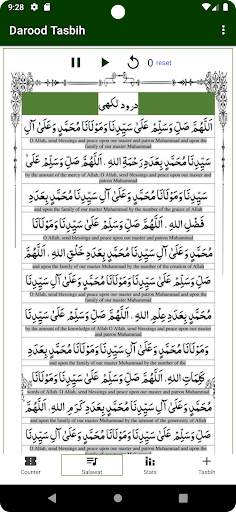 9:28
Darood Tasbih
0 reset
درود لکھی
اَللّٰهُمَّ صَلِّ وَسَلِّمْ عَلٰى سَيِّدِنَا وَمَوْلَانَا مُحَمَّدٍ وَعَلٰى آلِ
O Allah, send blessings and peace upon our master and patron Muhammad and upon the family of our master Muhammad
سَيِّدِنَا مُحَمَّدٍ بِعَدَدِ رَحْمَةِ اللهِ . اَللّٰهُمَّ صَلِّ وَسَلِّمْ عَلٰى
by the amount of the mercy of Allah. O Allah, send blessings and peace upon our master and patron Muhammad
سَيِّدِنَا وَمَوْلَانَا مُحَمَّدٍ وَعَلٰى آلِ سَيِّدِنَا مُحَمَّدٍ بِعَدَدِ
and upon the family of our master Muhammad by the number of the graces of Allah
فَضْلِ اللهِ . اَللّٰهُمَّ صَلِّ وَسَلِّمْ عَلٰى سَيِّدِنَا وَمَوْلَانَا
O Allah, send blessings and peace upon our master and patron Muhammad
مُحَمَّدٍ وَعَلٰى آلِ سَيِّدِنَا مُحَمَّدٍ بِعَدَدِ خَلْقِ اللهِ . اَللّٰهُمَّ
and upon the family of our master Muhammad by the number of the creation of Allah
صَلِّ وَسَلِّمْ عَلٰى سَيِّدِنَا وَمَوْلَانَا مُحَمَّدٍ وَعَلٰى آلِ سَيِّدِنَا
O Allah, send blessings and peace upon our master and patron Muhammad and upon the family of our master Muhammad
مُحَمَّدٍ بِعَدَدِ عِلْمِ اللهِ . اَللّٰهُمَّ صَلِّ وَسَلِّمْ عَلٰى سَيِّدِنَا
by the amount of the knowledge of Allah O Allah, send blessings and peace upon our master and patron Muhammad
وَمَوْلَانَا مُحَمَّدٍ وَعَلٰى آلِ سَيِّدِنَا وَمَوْلَانَا مُحَمَّدٍ بِعَدَدِ
and upon the family of our master Muhammad by the number of the
كَلِمَاتِ اللهِ . اَللّٰهُمَّ صَلِّ وَسَلِّمْ عَلٰى سَيِّدِنَا وَمَوْلَانَا
words of Allah. O Allah, send blessings and peace upon our master and patron Muhammad
مُحَمَّدٍ وَعَلٰى آلِ سَيِّدِنَا مُحَمَّدٍ بِعَدَدِ كَرَمِ اللهِ . اَللّٰهُمَّ
and upon the family of our master Muhammad by the amount of the generosity of Allah
صَلِّ وَسَلِّمْ عَلٰى سَيِّدِنَا وَمَوْلَانَا مُحَمَّدٍ وَعَلٰى آلِ سَيِّدِنَا
Counter Salawat Stats Tasbih